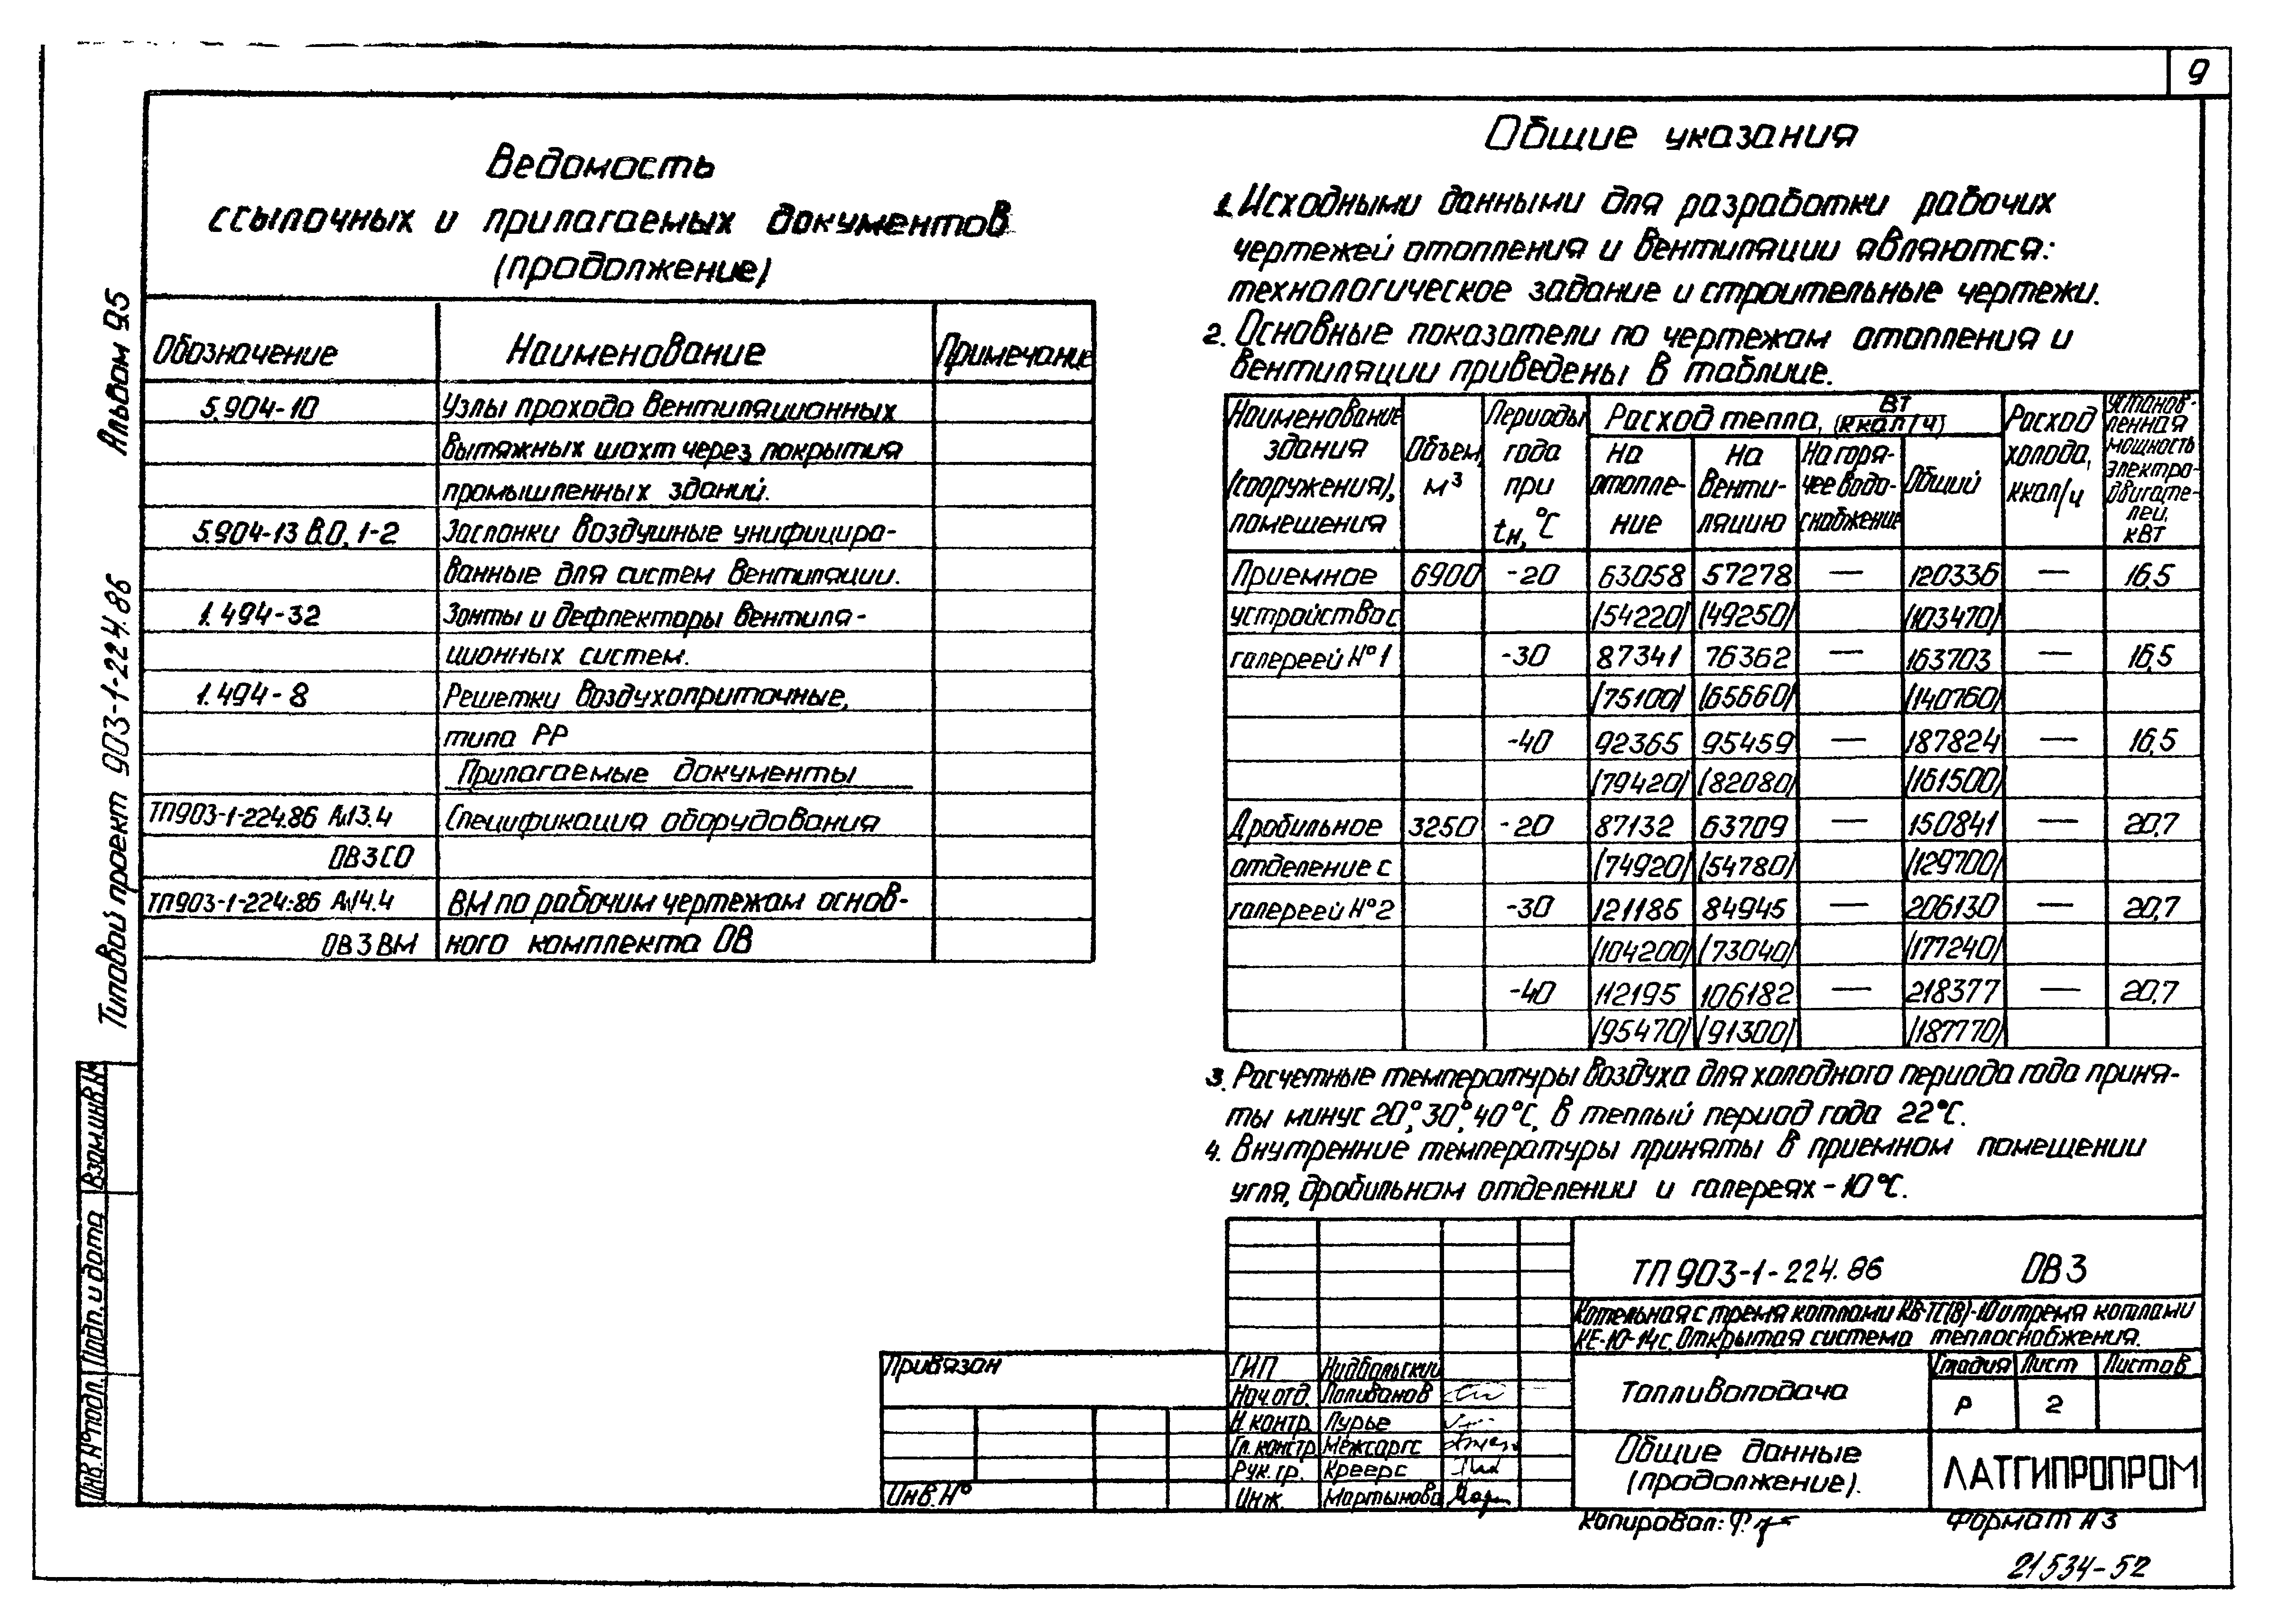 9
Альбом 9.5
Типовой проект 903-1-224.86
Взам.инв.№
Подп. и дата
Инв.№подл.
Ведомость
ссылочных и прилагаемых документов
(продолжение)
Обозначение Наименование Примечание
5.904-10 Узлы прохода вентиляционных
вытяжных шахт через покрытия
промышленных зданий.
5.904-13 В.0, 1-2 Заслонки воздушные унифициро-
ванные для систем вентиляции.
1.494-32 Зонты и дефлекторы вентиля-
ционных систем.
1.494-8 Решетки воздухоприточные,
типа РР
Прилагаемые документы
ТП903-1-224.86 Ал13.4 Спецификация оборудования
ОВ3СО
ТП903-1-224.86 Ал14.4 ВМ по рабочим чертежам основ-
ОВ3ВМ ного комплекта ОВ
Общие указания
1. Исходными данными для разработки рабочих
чертежей отопления и вентиляции являются:
технологическое задание и строительные чертежи.
2. Основные показатели по чертежам отопления и
вентиляции приведены в таблице.
Наименование здания (сооружения), помещения
Объем, м³
Периоды года при tн, °С
Расход тепла, Вт (ккал/ч)
На отопле-ние
На венти-ляцию
На горя-чее водо-снабжение
Общий
Расход холода, ккал/ч
Установ-ленная мощность электро-двигате-лей, кВт
Приемное 6900 -20 63058 57278 — 120336 — 16,5
устройство с /54220/ /49250/ /103470/
галереей №1 -30 87341 76362 — 163703 — 16,5
/75100/ /65660/ /140760/
-40 92365 95459 — 187824 — 16,5
/79420/ /82080/ /161500/
Дробильное 3250 -20 87132 63709 — 150841 — 20,7
отделение с /74920/ /54780/ /129700/
галереей №2 -30 121185 84945 — 206130 — 20,7
/104200/ /73040/ /177240/
-40 112195 106182 — 218377 — 20,7
/95470/ /91300/ /187770/
3. Расчетные температуры воздуха для холодного периода года приня-
ты минус 20°, 30°, 40°С, в теплый период года 22°С.
4. Внутренние температуры приняты в приемном помещении
угля, дробильном отделении и галереях - 10°С.
ТП 903-1-224.86 ОВ3
Котельная с тремя котлами КВ-ТС(В)-10 и тремя котлами
КЕ-10-14с. Открытая система теплоснабжения.
Привязан
Инв.№
ГИП Нидбальский
Нач.отд. Поливанов
Н.контр. Лурье
Гл.констр. Межсаргс
Рук.гр. Креерс
Инж. Мартынова
Топливоподача
Стадия Лист Листов
Р 2
Общие данные
(продолжение).
ЛАТГИПРОПРОМ
Копировал:
Формат А3
21534-52